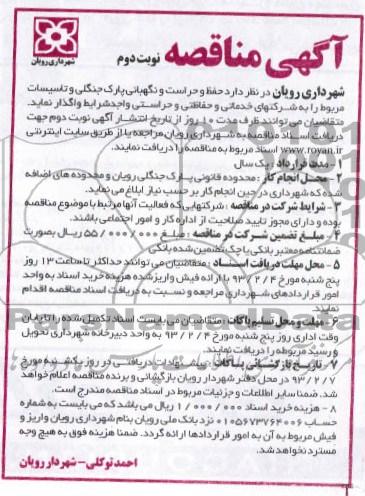 شهرداری رویان
آگهی مناقصه نوبت دوم
شهرداری رویان در نظر دارد حفظ و حراست و نگهبانی پارک جنگلی و تاسیسات
مربوط را به شرکتهای خدماتی و حفاظتی و حراستی واجدشرایط واگذار نماید.
متقاضیان می توانند ظرف مدت ۱۰ روز از تاریخ انتشار آگهی نوبت دوم جهت
دریافت اسناد مناقصه به شهرداری رویان مراجعه یا از طریق سایت اینترنتی
www.royan.ir اسناد مربوط به مناقصه را دریافت نمایند.
۱- مدت قرارداد : یک سال
۲- محل انجام کار : محدوده قانونی پارک جنگلی رویان و محدوده های اضافه
شده که شهرداری در حین انجام کار بر حسب نیاز ابلاغ می نماید.
۳- شرایط شرکت در مناقصه : شرکتهایی که فعالیت آنها مرتبط با موضوع مناقصه
بوده و دارای مجوز تایید صلاحیت از اداره کار و امور اجتماعی باشند.
۴- مبلغ تضمین شرکت در مناقصه : مبلغ ۵۵/۰۰۰/۰۰۰ ریال بصورت
ضمانتنامه معتبر بانکی یا چک تضمین شده بانکی
۵- محل مهلت دریافت اسناد : متقاضیان می توانند حداکثر تا ساعت ۱۳ روز
پنج شنبه مورخ ۹۳/۲/۴ با ارائه فیش واریز شده هزینه خرید اسناد به واحد
امور قراردادهای شهرداری مراجعه و نسبت به دریافت اسناد مناقصه اقدام
نمایند.
۶- مهلت و محل تسلیم پاکات : متقاضیان می بایست اسناد تکمیل شده را تا پایان
وقت اداری روز پنج شنبه مورخ ۹۳/۲/۴ به واحد دبیرخانه شهرداری تحویل
و رسید مربوطه را دریافت نمایند.
۷- تاریخ بازگشایی پاکات : پیشنهادات دریافتی در روز یکشنبه مورخ
۹۳/۲/۷ در محل دفتر شهردار رویان بازگشائی و برنده مناقصه اعلام خواهد
شد. ضمنا سایر اطلاعات و جزئیات مربوط در اسناد مناقصه مندرج است.
۸- هزینه خرید اسناد ۱/۰۰۰/۰۰۰ ریال می باشد که می بایست به شماره
حساب ۰۱۰۵۶۷۳۷۶۴۰۰۶ نزد بانک ملی رویان بنام شهرداری رویان واریز و
فیش مربوط به آن به امور قراردادها ارائه گردد. ضمنا هزینه فوق به هیچ وجه
مسترد نخواهد شد.
احمد توکلی - شهردار رویان